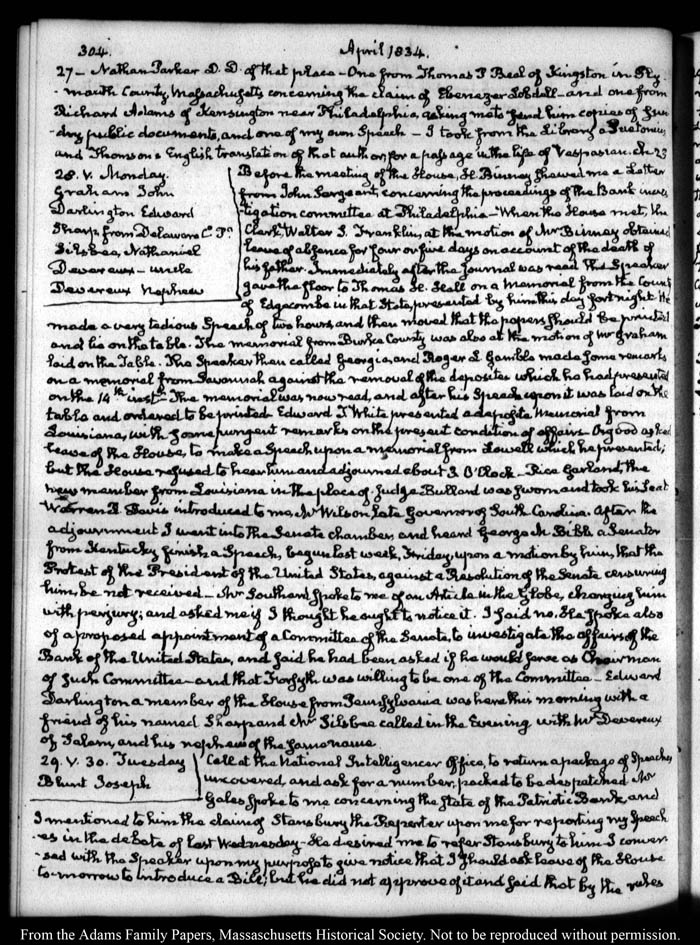 304.
April 1834.
27 – Nathan Parker D. D. of that place – One from Thomas P Beal of Kingston in Ply
-mouth County Massachusetts concerning the claim of Ebenezer Lobdell – and one from
Richard Adams of Kensington near Philadelphia, asking me to send him copies of sun
dry public documents, and one of my own Speech – I took from the Library a Suetonius
and Thomson's English translation of that author, for a passage in the life of Vespasian. Ch. 23
28. V. Monday.
Graham John
Darlington Edward
Sharp from Delaware Co. Pa.
Silsbee, Nathaniel
Devereux – uncle
Devereux Nephew
Before the meeting of the House, H. Binney shewed me a Letter
from John Sergeant, concerning the proceedings of the Bank inves
tigation committee at Philadelphia – When the House met, the
Clerk Walter S. Franklin, at the motion of Mr Binney obtained
leave of absence for four or five days on account of the death of
his father. Immediately after the Journal was read the Speaker
gave the floor to Thomas H. Hall on a Memorial from the County
of Edgecombe in that State, presented by him this day fortnight. He
made a very tedious Speech of two hours, and then moved that the papers should be printed
and lie on the table. The memorial from Burke County was also at the motion of Mr Graham
laid on the Table. The Speaker then called Georgia, and Roger L. Gamble made some remarks
on a memorial from Savannah against the removal of the deposites which he had presented
on the 14th inst. The memorial was now read, and after his Speech upon it was laid on the
table and ordered to be printed. Edward D White presented a deposite Memorial from
Louisiana, with some pungent remarks on the present condition of affairs. Osgood asked
leave of the House, to make a Speech upon a memorial from Lowell which he presented;
but the House refused to hear him and adjourned about 3 O'Clock – Rice Garland, the
new member from Louisiana in the place of Judge Bullard was sworn and took his Seat
Warren R. Davis introduced to me, Mr Wilson, late Governor of South Carolina. After the
adjournment I went into the Senate chamber, and heard George M. Bibb a Senator
from Kentucky finish a Speech, begun last week, Friday, upon a motion by him, that the
Protest of the President of the United States, against a Resolution of the Senate censuring
him, be not received – Mr Southard spoke to me of an Article in the Globe, charging him
with perjury; and asked me if I thought he ought to notice it. I said no. He spoke also
of a proposed appointment of a Committee of the Senate, to investigate the affairs of the
Bank of the United States, and said he had been asked if he would serve as Chairman
of such Committee – and that Forsyth was willing to be one of the Committee – Edward
Darlington a member of the House from Pennsylvania was here this morning with a
friend of his named Sharp and Mr Silsbee called in the Evening with Mr Devereux
of Salem, and his nephew of the same name.
29. V. 30. Tuesday
Blunt Joseph
Call at the National Intelligencer Office, to return a package of Speeches
uncovered, and ask for a number, packed to be despatched. Mr
Gales spoke to me concerning the State of the Patriotic Bank, and
I mentioned to him the claim of Stansbury the Reporter upon me for reporting my Speech
-es in the debate of last Wednesday – He desired me to refer Stansbury to him. I conver
-sed with the Speaker upon my purpose to give notice that I should ask leave of the House
to-morrow to introduce a Bill; but he did not approve of it and said that by the rules
From the Adams Family Papers, Massachusetts Historical Society. Not to be reproduced without permission.